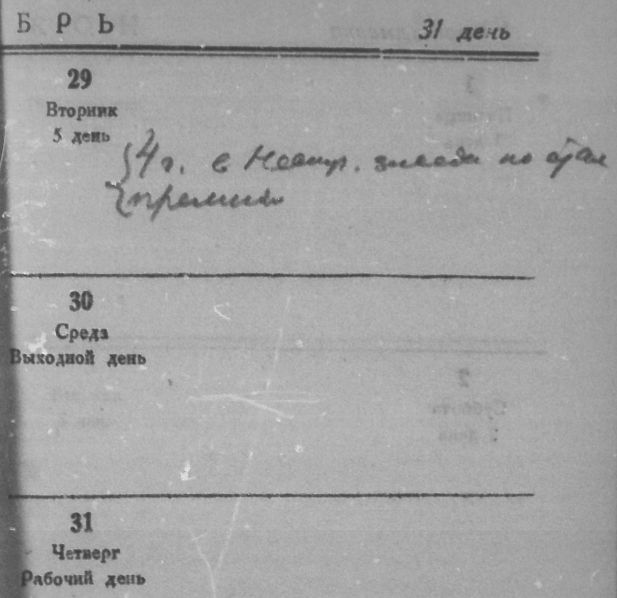 БРЬ 31 день
29
Вторник
5 день
4 г. в по
премии
30
Среда
Выходной день
31
Четверг
Рабочий день